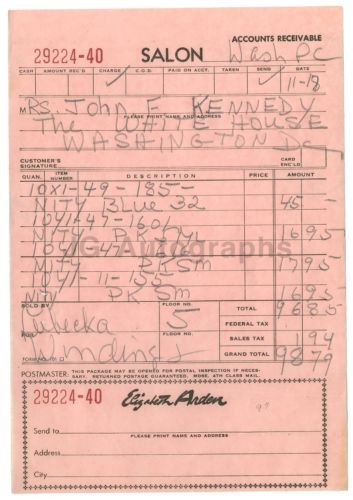 ACCOUNTS RECEIVABLE
29224-40 SALON Wash DC
CASH AMOUNT REC'D CHARGE C.O.D. PAID ON ACCT. TAKEN SEND DATE
✓ ✓ 11-18
MRS. JOHN F KENNEDY
PLEASE PRINT NAME AND ADDRESS
The WHITE HOUSE
WASHINGTON DC
CUSTOMER'S SIGNATURE CARD ENC'LD.
QUAN. ITEM NUMBER DESCRIPTION PRICE AMOUNT
10X1-49-185-
NITY BLUE 32 45 -
1041-47-1601
NITY 1695
1041-47
NITY PK SM 1795
1041-11-155
NITY PK SM 1695
SOLD BY FLOOR NO. TOTAL 9685
5
FEDERAL TAX
FLOOR NO. SALES TAX 194
FORM NO. GRAND TOTAL 9879
POSTMASTER: THIS PACKAGE MAY BE OPENED FOR POSTAL INSPECTION IF NECESSARY, RETURNED POSTAGE GUARANTEED. MDSE. 4TH CLASS MAIL.
29224-40 Elizabeth Arden
Send to
PLEASE PRINT NAME AND ADDRESS
Address
City
Autographs